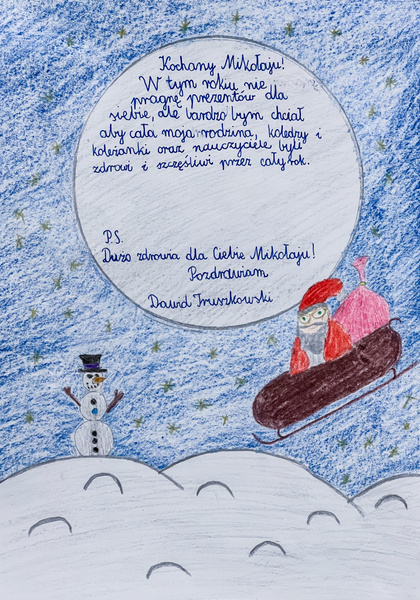 Kochany Mikołaju!
W tym roku nie
pragnę prezentów dla
siebie, ale bardzo bym chciał
aby cała moja rodzina, koledzy i
koleżanki oraz nauczyciele byli
zdrowi i szczęśliwi przez cały rok.
P.S.
Dużo zdrowia dla Ciebie Mikołaju!
Pozdrawiam
Dawid Truszkowski